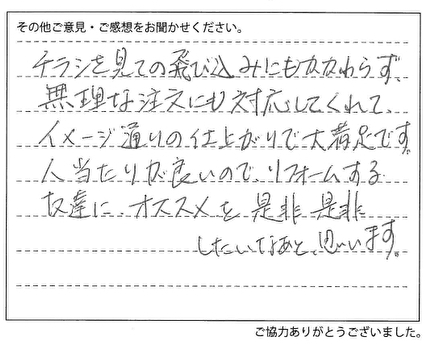 その他ご意見・ご感想をお聞かせください。
チラシを見ての飛び込みにもかかわらず、
無理な注文にも対応してくれて、
イメージ通りの仕上がりで大満足です。
人当たりが良いので、リフォームする
友達に、オススメを是非是非
したいなあと、思います。
ご協力ありがとうございました。